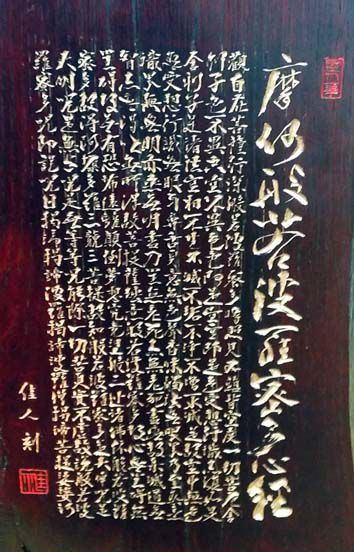 摩訶般若波羅密多心經
觀自在菩薩行深般若波羅密多時照見五蘊皆空度一切苦厄舍
利子色不異空空不異色色即是空空即是色受想行識亦復如是
舍利子是諸法空相不生不滅不垢不淨不增不減是故空中無色
無受想行識無眼耳鼻舌身意無色聲香味觸法無眼界乃至無意
識界無無明亦無無明盡乃至無老死亦無老死盡無苦集滅道無
智亦無得以無所得故菩提薩埵依般若波羅密多故心無罣礙無
罣礙故無有恐怖遠離顛倒夢想究竟涅槃三世諸佛依般若波羅
密多故得阿耨多羅三藐三菩提故知般若波羅密多是大神咒是
大明咒是無上咒是無等等咒能除一切苦真實不虛故說般若波
羅密多咒即說咒曰揭諦揭諦波羅揭諦波羅僧揭諦菩提薩婆訶
佳人刻